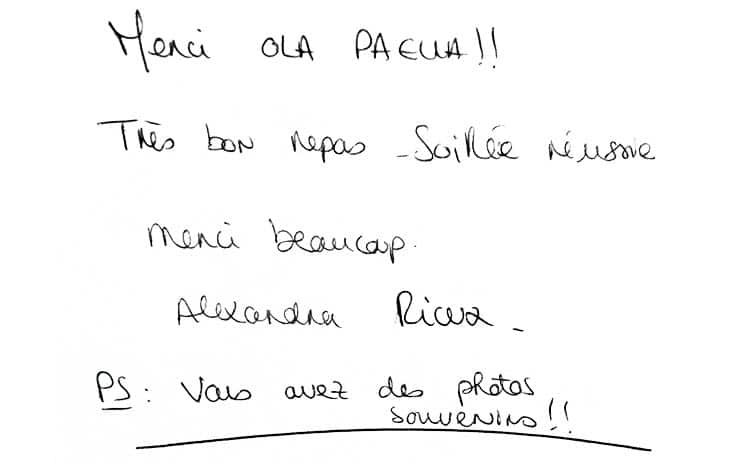 Merci OLA PAELLA!!
Très bon repas - Soirée réussie
Merci beaucoup.
Alexandra
PS : Vous avez des photos
souvenirs!!